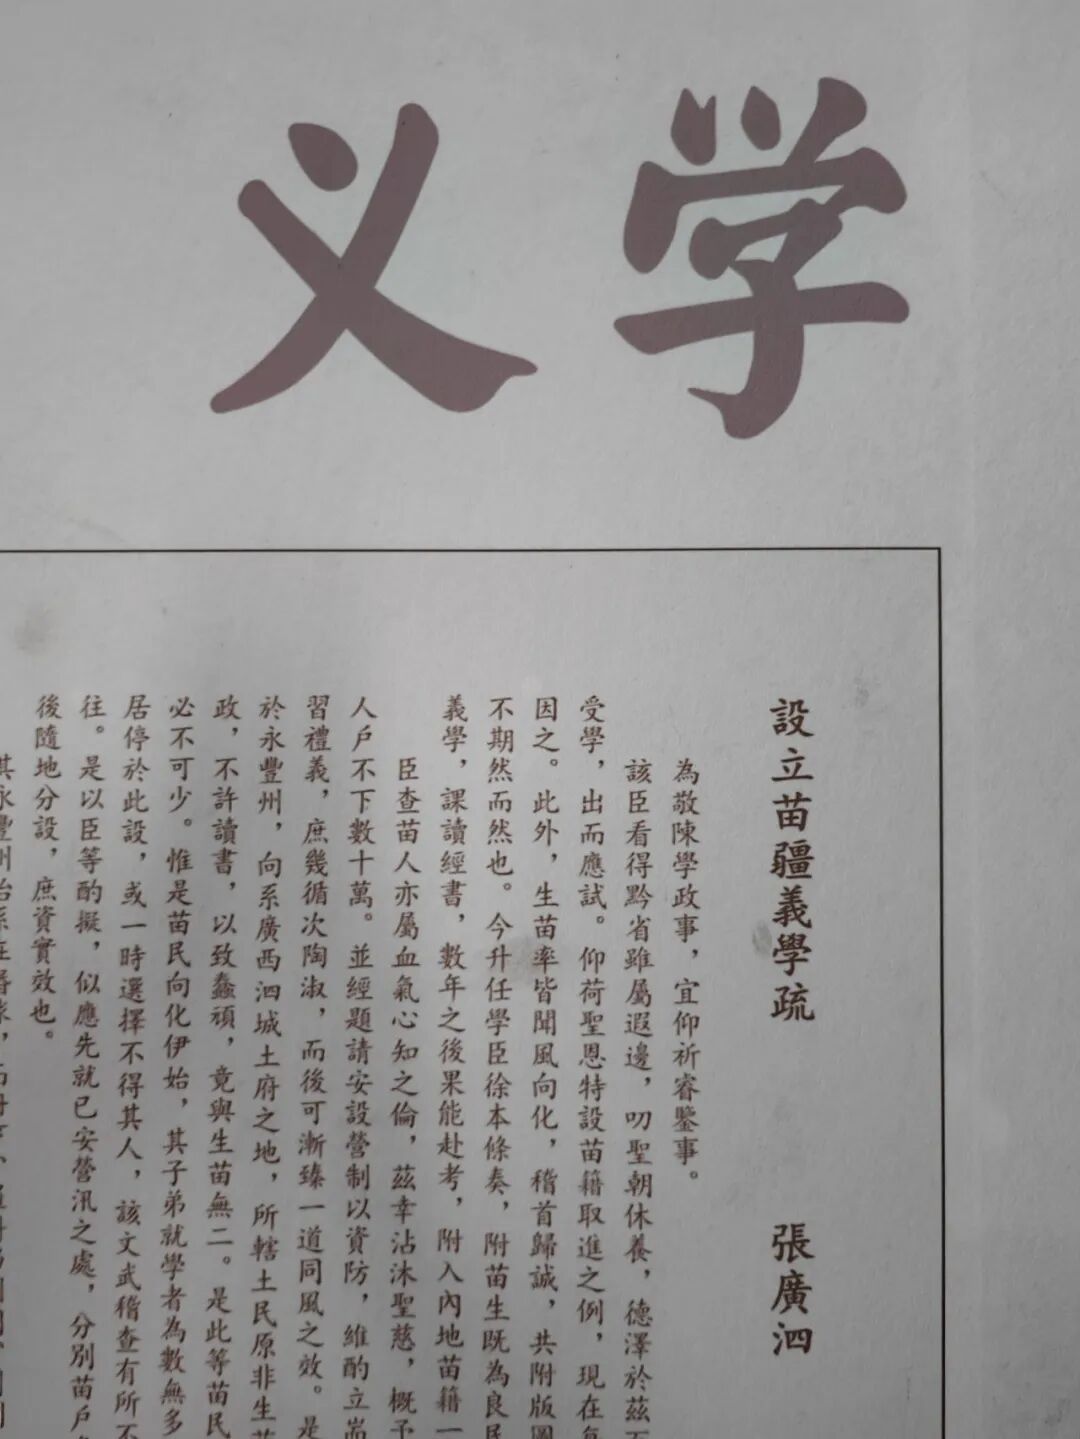 义学
設立苗疆義學疏 張廣泗
為敬陳學政事，宜仰祈睿鑒事。
該臣看得黔省雖屬遐邊，叨聖朝休養，德澤於茲
受學，出而應試。仰荷聖恩特設苗籍取進之例，現在
因之。此外，生苗率皆聞風向化，稽首歸誠，共附版圖
不期然而然也。今升任學臣徐本條奏，附苗生既為良民
義學，課讀經書，數年之後果能赴考，附入內地苗籍一
臣查苗人亦屬血氣心知之倫，茲幸沾沐聖慈，概予
人戶不下數十萬。並經題請安設營制以資防，維酌立耑
習禮義，庶幾循次陶淑，而後可漸臻一道同風之效。是
於永豐州，向系廣西泗城土府之地，所轄土民原非生苗
政，不許讀書，以致蠢頑，竟與生苗無二。是此等苗民
必不可少。惟是苗民向化伊始，其子弟就學者為數無多
居停於此設，或一時選擇不得其人，該文武稽查有所不
往。是以臣等酌擬，似應先就已安營汛之處，分別苗戶
後隨地分設，庶資實效也。
其永豐州治係在